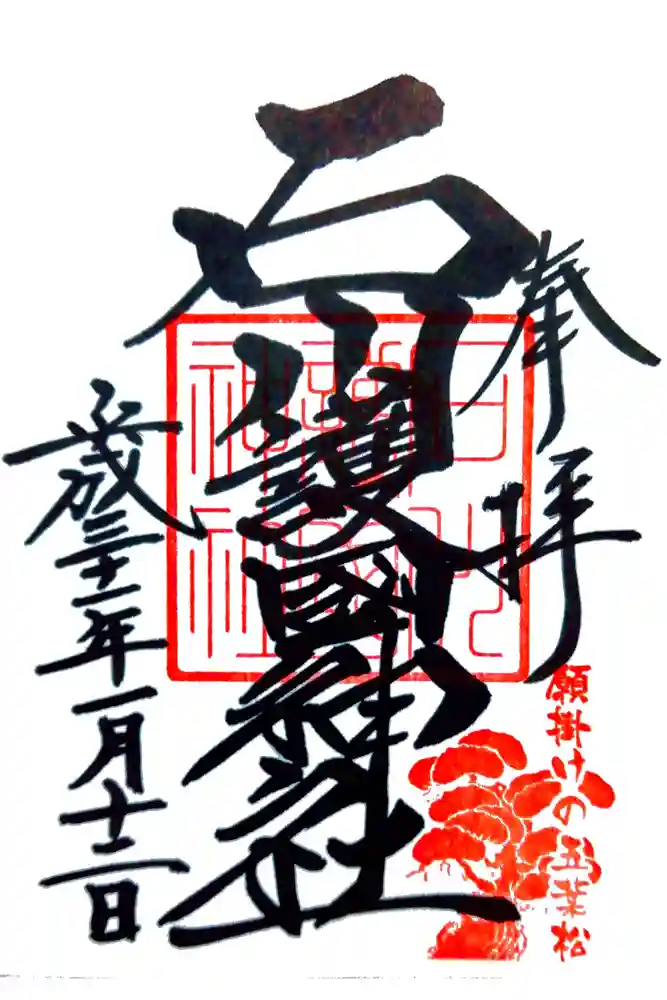 奉拝
石川護國神社
平成三十一年一月十二日
願掛けの五葉松